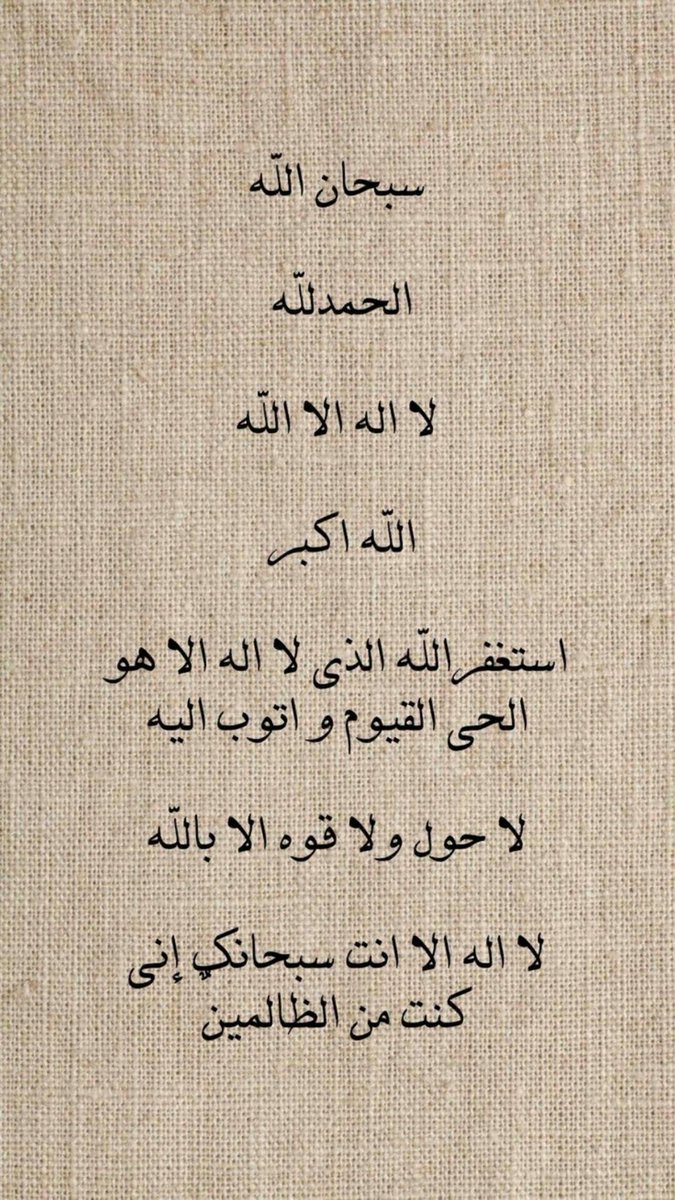 سبحان اللّه
الحمدللّه
لا اله الا اللّه
اللّه اكبر
استغفراللّه الذى لا اله الا هو
الحى القيوم و اتوب اليه
لا حول ولا قوه الا باللّه
لا اله الا انت سبحانك إنى
كنت من الظالمين